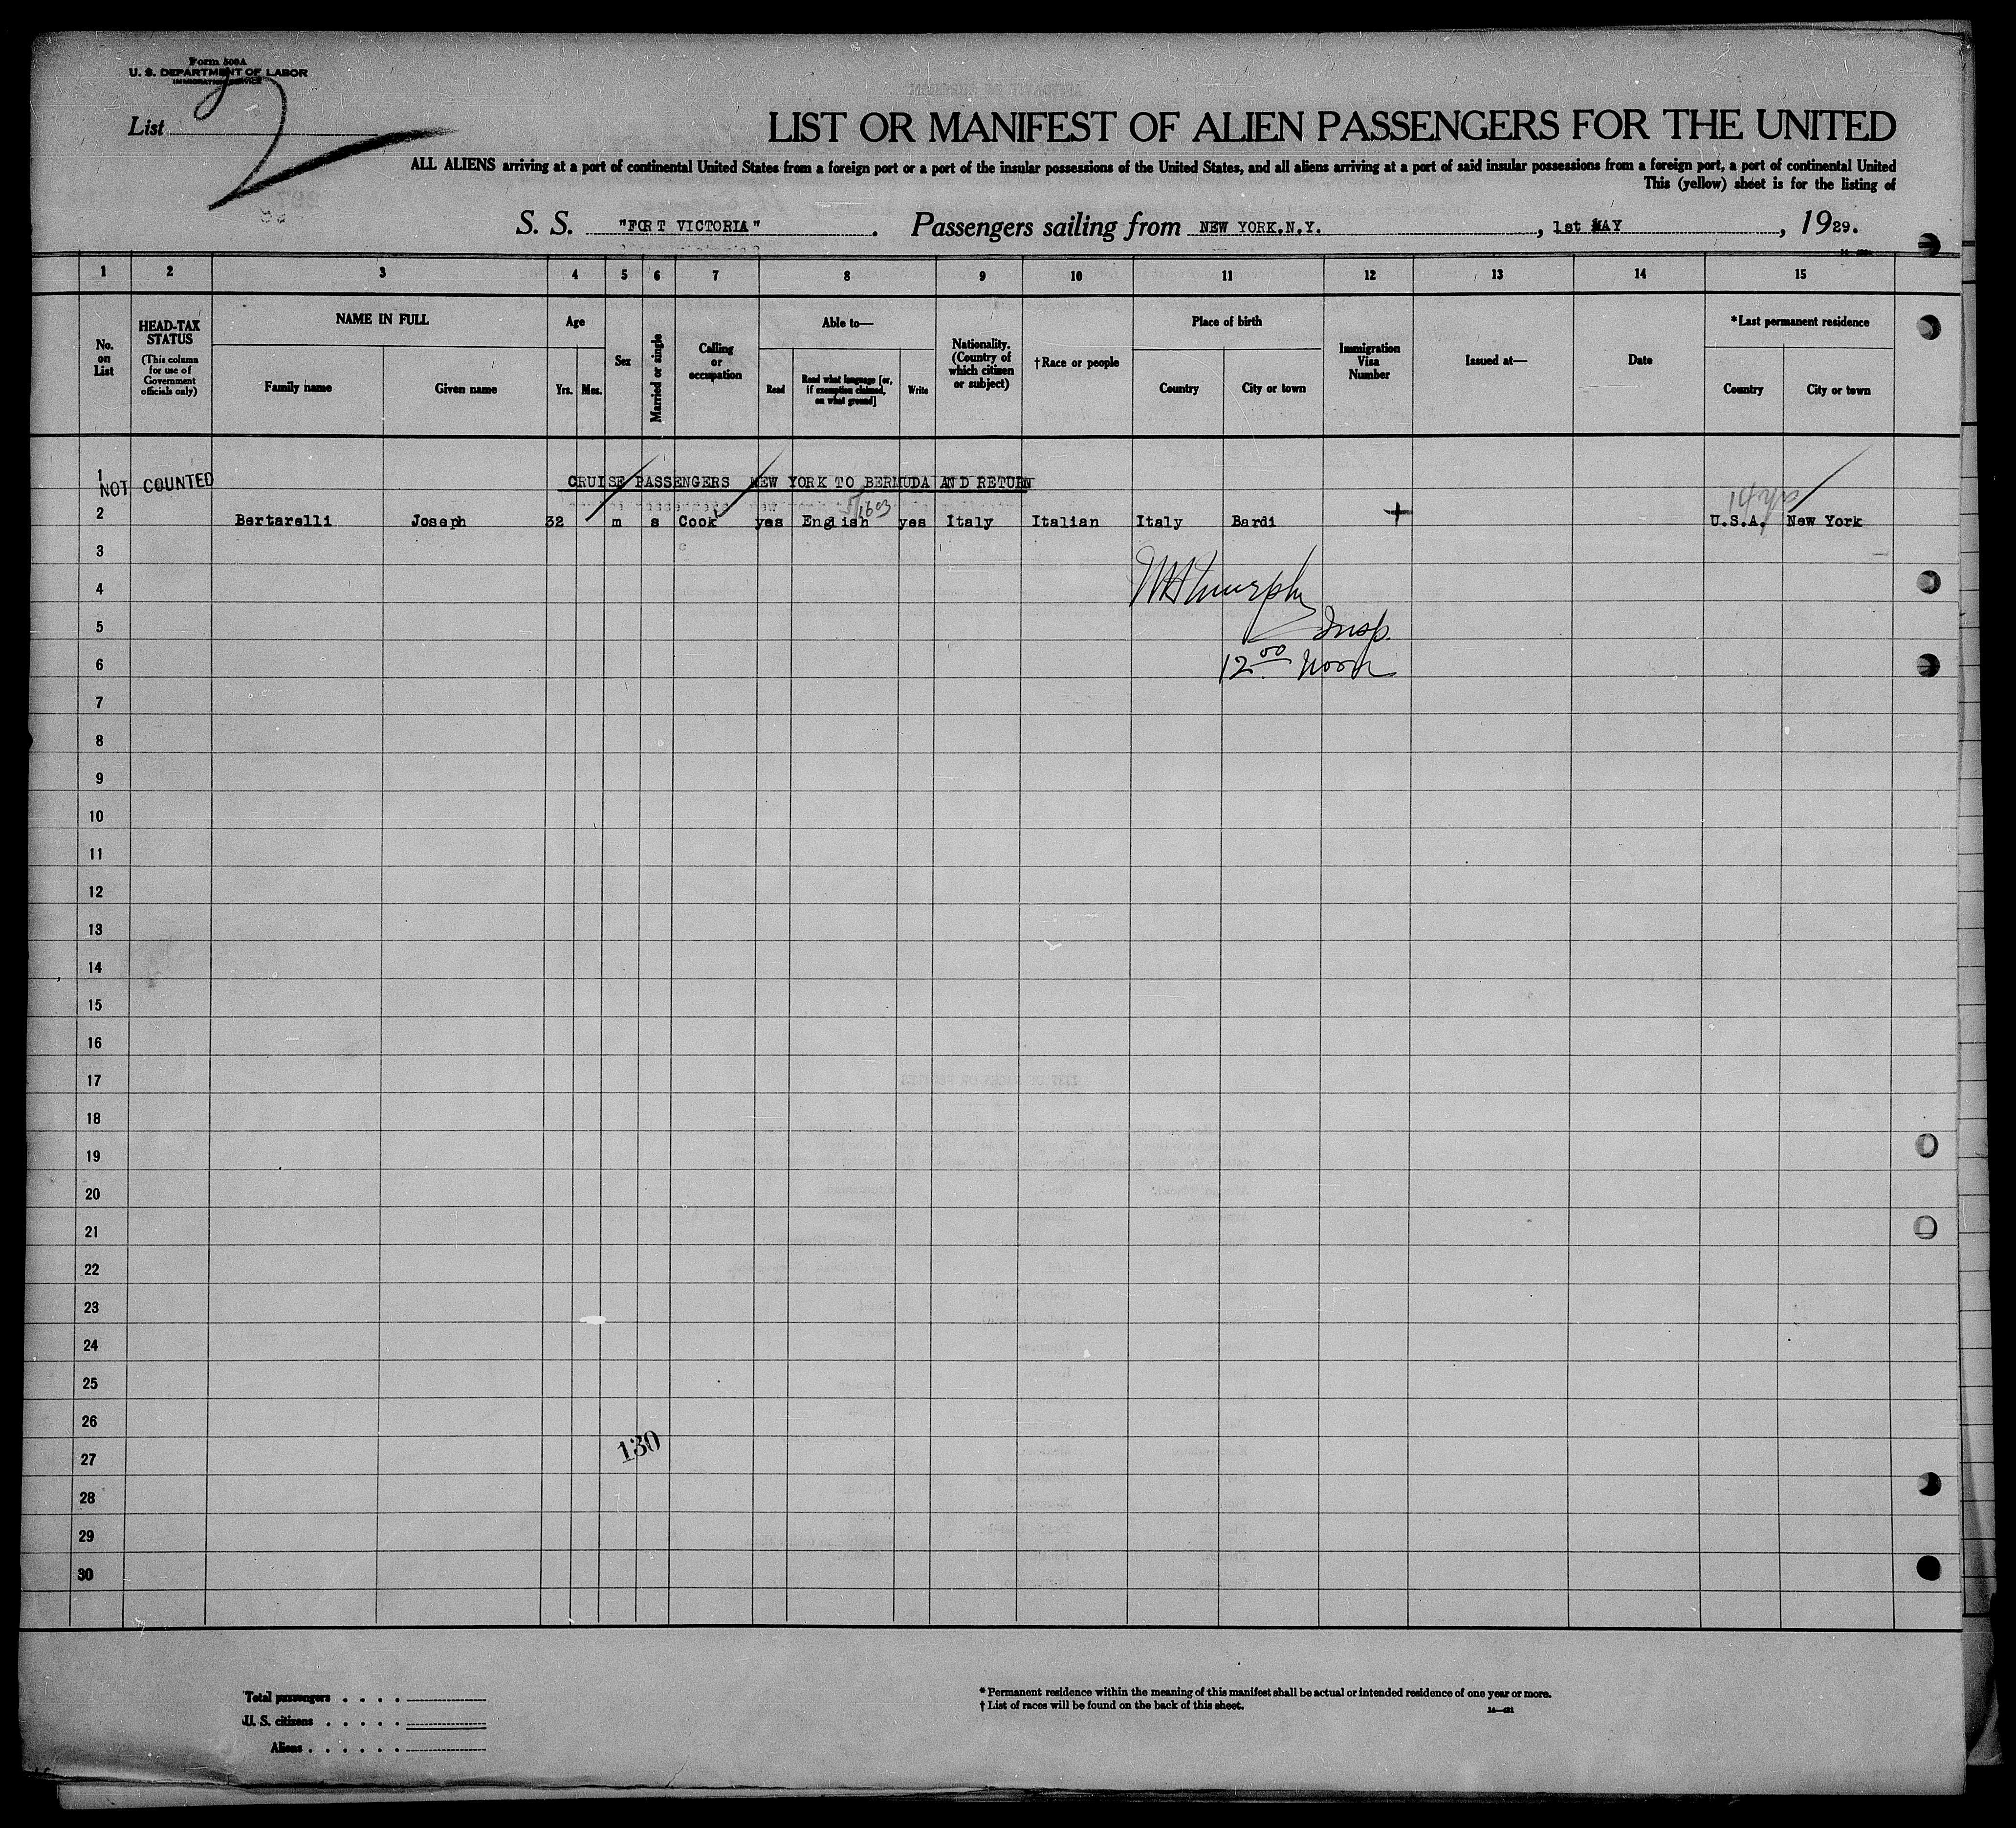 Form 500A
U. S. DEPARTMENT OF LABOR
IMMIGRATION SERVICE
List 2
LIST OR MANIFEST OF ALIEN PASSENGERS FOR THE UNITED
ALL ALIENS arriving at a port of continental United States from a foreign port or a port of the insular possessions of the United States, and all aliens arriving at a port of said insular possessions from a foreign port, a port of continental United
This (yellow) sheet is for the listing of
S. S. "FORT VICTORIA" . Passengers sailing from NEW YORK.N.Y. , 1st MAY , 1929.
1 2 3 4 5 6 7 8 9 10 11 12 13 14 15
No. on List
HEAD-TAX STATUS (This column for use of Government officials only)
NAME IN FULL
Family name
Given name
Age
Yrs. Mos.
Sex
Married or single
Calling or occupation
Able to—
Read
Read what language [or, if exemption claimed, on what ground]
Write
Nationality. (Country of which citizen or subject)
†Race or people
Place of birth
Country
City or town
Immigration Visa Number
Issued at—
Date
*Last permanent residence
Country
City or town
1
NOT COUNTED
CRUISE PASSENGERS NEW YORK TO BERMUDA AND RETURN
5/1603
2 Bertarelli Joseph 32 m s Cook yes English yes Italy Italian Italy Bardi + U.S.A. New York
3
4
Murphy
5
Insp.
6
12 00 noon
7
8
9
10
11
12
13
14
15
16
17
18
19
20
21
22
23
24
25
26
130
27
28
29
30
Total passengers . . . .
U. S. citizens . . . . .
Aliens . . . . . .
* Permanent residence within the meaning of this manifest shall be actual or intended residence of one year or more.
† List of races will be found on the back of this sheet.